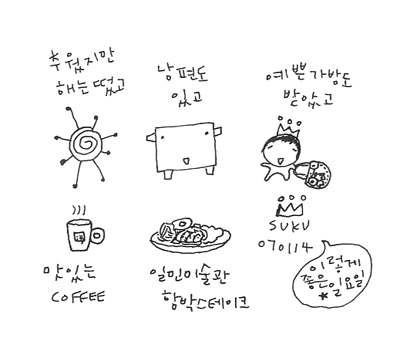 추웠지만
해는 떴고
남편도
있고
예쁜가방도
받았고
맛있는
COFFEE
일민미술관
함박스테이크
SUKU
070114
이렇게
좋은
일요일